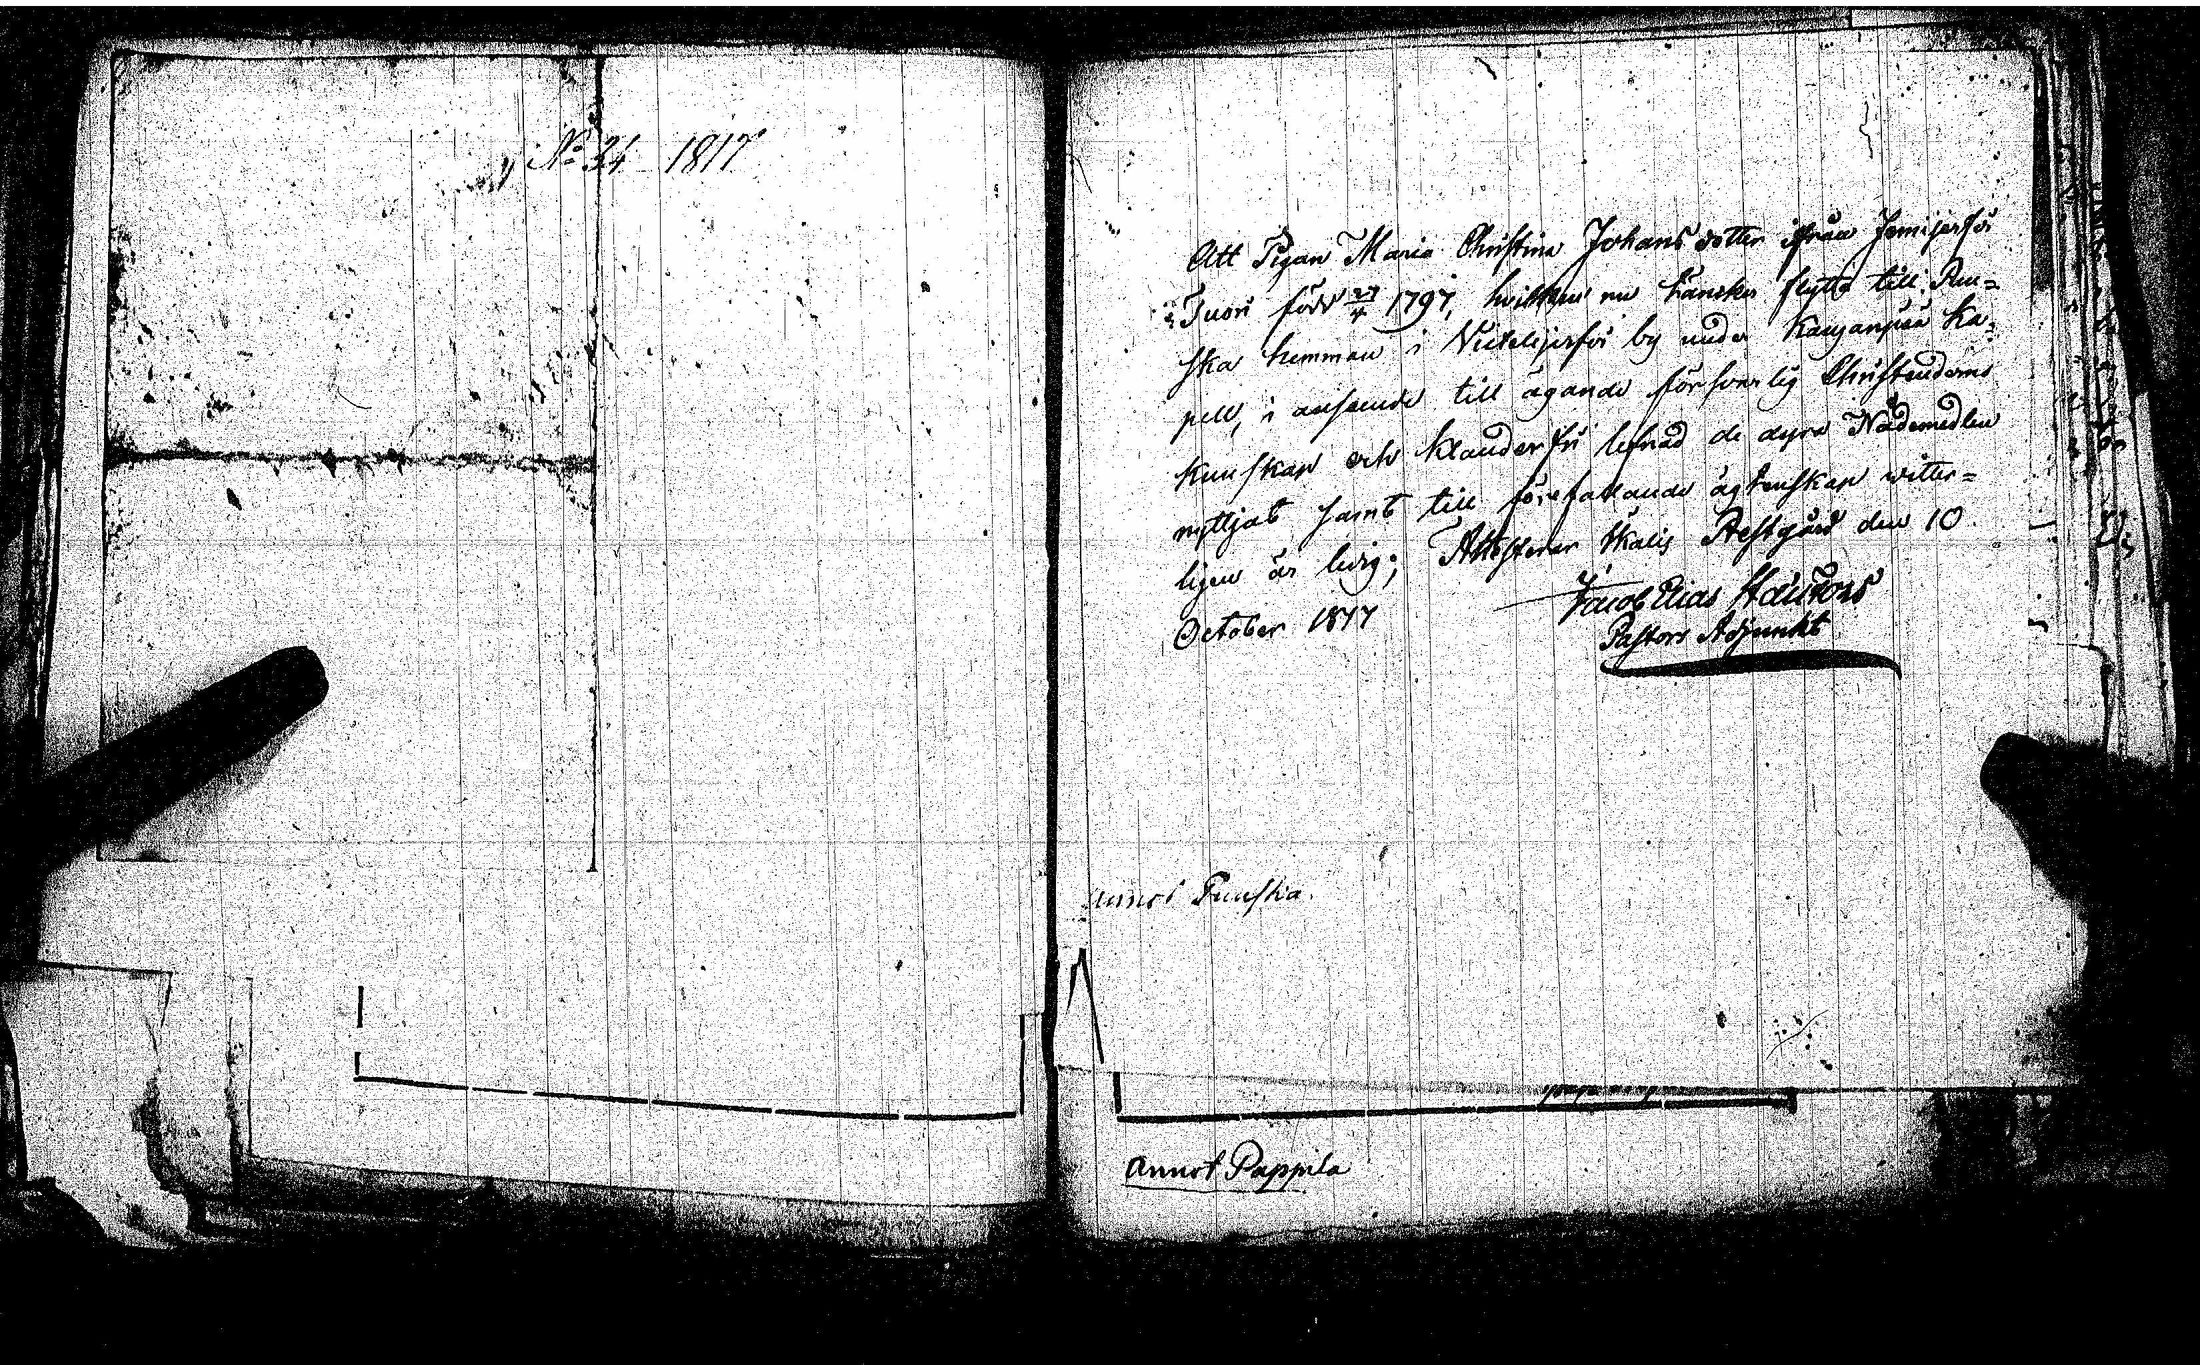 No 34 1817
Att Pigan Maria Christina Johansdotter ifrån Jemijerfvi
Tuori född 27/4 1797, hvilken nu tänker flytta till Pun=
ska hemman i by under Kanganpää Ka=
pell, i anseende till ägande försvarlig Christendoms
kunskap och klanderfri lefnad de dyra Nådemedlen
nyttjat samt till förefallande ägtenskap witter=
ligen är ledig; Attesterar Ikalis Prestgård den 10
October 1817
Jacob Elias
Pastors Adjunkt
annot Punska.
annot Pappila